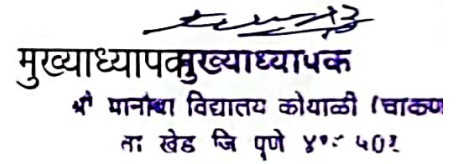 मुख्याध्यापक मुख्याध्यापक
विद्यालय कोयाळी (चाकण
ता खेड जि पुणे ४१० ५०१